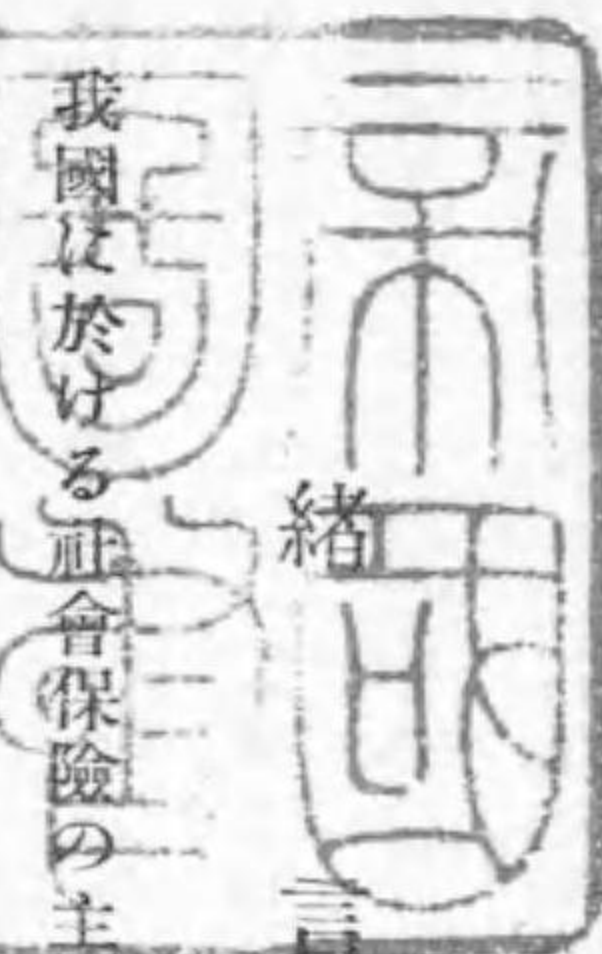 緒言
我國に於ける社會保險の主